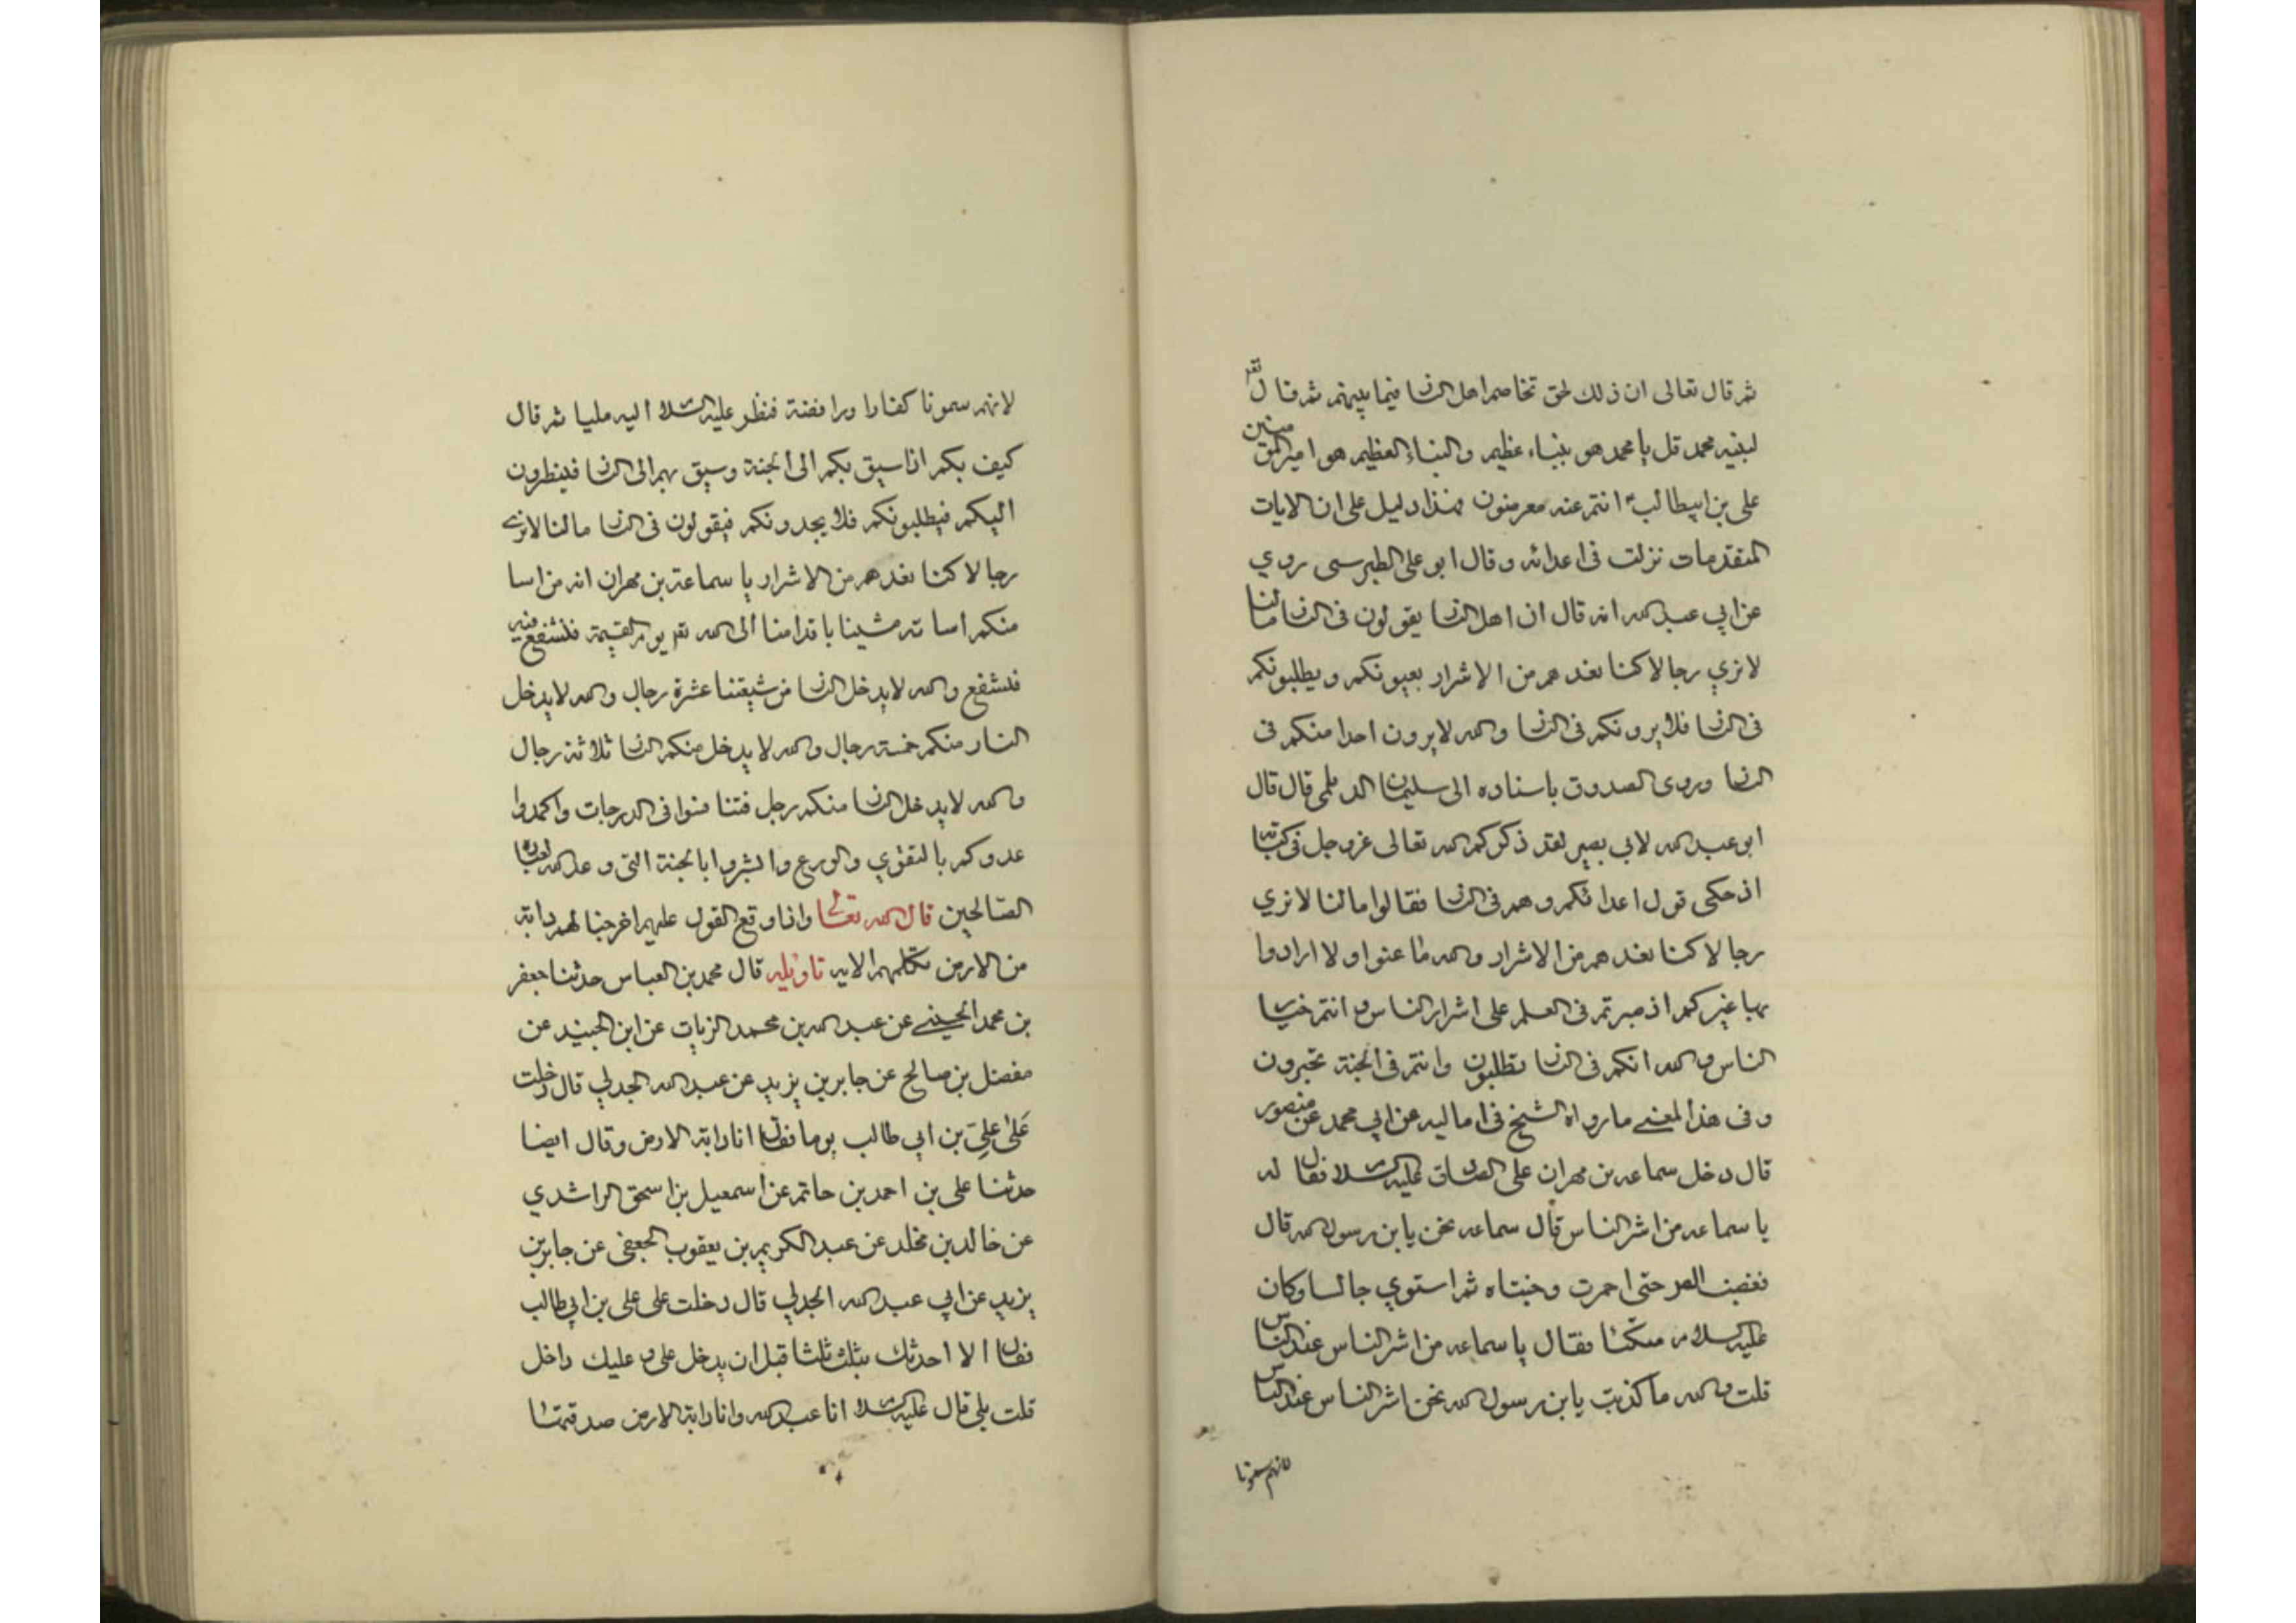 ثم قال تعالى ان ذلك لحق تخاصم اهل النار فيما بينهم ثم قال تعالى
لنبيه محمد قل يا محمد هو نبباء عظيم والنباء العظيم هو امير المؤمنين
علي بن ابيطالب انتم عنه معرضون فهذا دليل على ان الايات
المتقدمات نزلت في اعدائه وقال ابو على الطبرسى روي
عن ابي عبد الله انه قال ان اهل النار يقولون في النار ما لنا
لا نري رجالا كنا نعدهم من الاشرار بعيونكم ويطلبونكم
في النار فلا يرونكم في النار والله لا يرون احدا منكم في
النار وروى الصدوق باسناده الى سليمان الديلمي قال قال
ابو عبد الله لابي بصير لقد ذكركم الله تعالى عز وجل في كتابه
اذ حكى قول اعدائكم وهم في النار فقالوا ما لنا لا نري
رجالا كنا نعدهم من الاشرار والله ما عنوا ولا ارادوا
بها غيركم اذ صرتم في العلم على اشرار الناس وانتم خيار
الناس والله انكم في النار تطلبون وانتم في الجنة تحبرون
وفي هذا المعنى ما رواه الشيخ في اماليه عن ابي محمد عن منصور
قال دخل سماعه بن مهران على الصادق عليه السلام فقال له
يا سماعه من اشر الناس قال سماعه نحن يا بن رسول الله قال
فغضب حتى احمرت وجنتاه ثم استوي جالسا وكان
عليه السلام متكئا فقال يا سماعه من اشر الناس عند الناس
قلت والله ما كذبت يا بن رسول الله نحن اشر الناس عند الناس
لانهم سمونا
لانهم سمونا كفارا ورافضة فنظر عليه السلام اليه مليا ثم قال
كيف بكم اذا سيق بكم الى الجنة وسيق بهم الى النار فينظرون
اليكم فيطلبونكم فلا يجدونكم فيقولون في النار ما لنا لا نرى
رجالا كنا نعدهم من الاشرار يا سماعة بن مهران انه من اسا
منكم اساته مشينا باقدامنا الى الله تعالى يوم القيمة فنشفع فيه
فنشفع والله لا يدخل النار من شيعتنا عشرة رجال والله لا يدخل
النار منكم خمسة رجال والله لا يدخل منكم النار ثلاثة رجال
والله لا يدخل النار منكم رجل فتنافسوا في الدرجات واكمدوا
عدوكم بالتقوي والورع وابشروا بالجنة التي وعد الله لعباده
الصالحين قال الله تعالى واذا وقع القول عليهم اخرجنا لهم دابة
من الارض تكلمهم الايه تاويله قال محمد بن العباس حدثنا جعفر
بن محمد الحسيني عن عبد الله بن محمد الزيات عن ابن الجنيد عن
مفضل بن صالح عن جابر بن يزيد عن عبد الله الجدلي قال دخلت
على علي بن ابي طالب يوما فقال انا دابة الارض وقال ايضا
حدثنا علي بن احمد بن حاتم عن اسمعيل بن اسحق الراشدي
عن خالد بن مخلد عن عبد الكريم بن يعقوب الجعفي عن جابر بن
يزيد عن ابي عبد الله الجدلي قال دخلت على على بن ابي طالب
فقال الا احدثك ثلثا قبل ان يدخل علي وعليك داخل
قلت بلى قال عليه السلام انا عبد الله وانا دابة الارض صدقتها